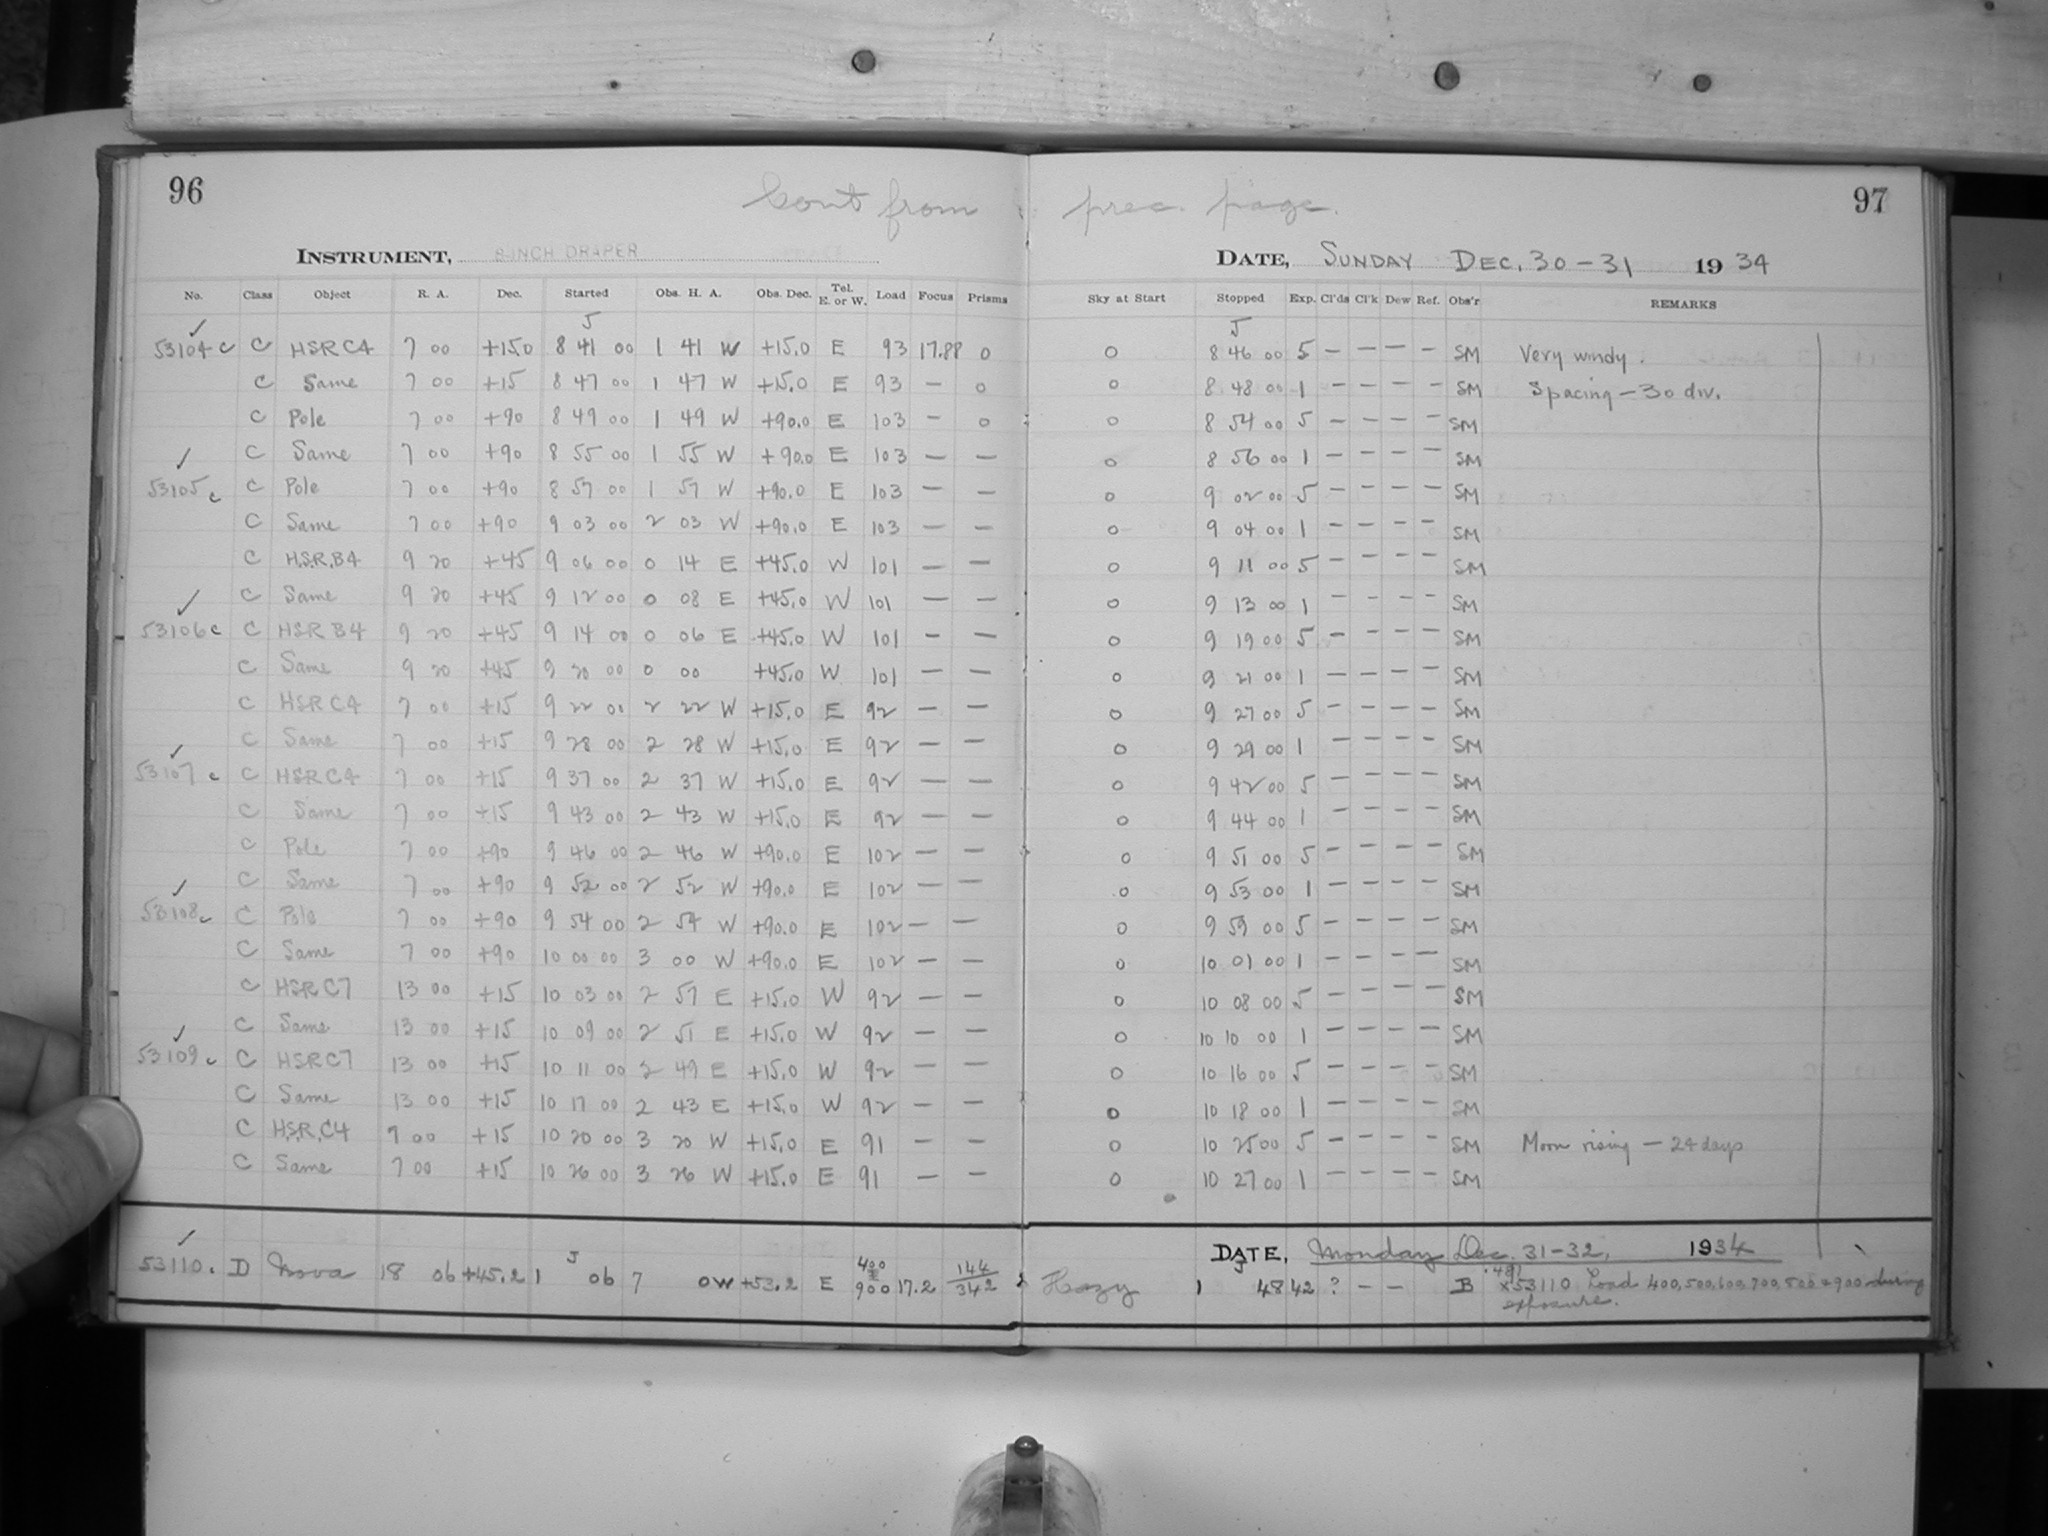 96
Cont from prec. page.
97
INSTRUMENT, 8 INCH DRAPER
DATE, SUNDAY DEC. 30-31 1934
No. Class Object R. A. Dec. Started Obs. H. A. Obs. Dec. Tel. E. or W. Load Focus Prisms Sky at Start Stopped Exp. Cl'ds Cl'k Dew Ref. Obs'r REMARKS
J J
✓
53104 c C HSR C4 7 00 +15.0 8 41 00 1 41 W +15.0 E 93 17.88 0 0 8 46 00 5 — — — — SM Very windy.
C Same 7 00 +15 8 47 00 1 47 W +15.0 E 93 — 0 0 8 48 00 1 — — — — SM Spacing — 30 div.
C Pole 7 00 +90 8 49 00 1 49 W +90.0 E 103 — 0 0 8 54 00 5 — — — — SM
✓ C Same 7 00 +90 8 55 00 1 55 W +90.0 E 103 — — 0 8 56 00 1 — — — — SM
53105 c C Pole 7 00 +90 8 57 00 1 57 W +90.0 E 103 — — 0 9 02 00 5 — — — — SM
C Same 7 00 +90 9 03 00 2 03 W +90.0 E 103 — — 0 9 04 00 1 — — — — SM
C H.S.R.B4 9 20 +45 9 06 00 0 14 E +45.0 W 101 — — 0 9 11 00 5 — — — — SM
✓ C Same 9 20 +45 9 12 00 0 08 E +45.0 W 101 — — 0 9 13 00 1 — — — — SM
53106 c C HSR B4 9 20 +45 9 14 00 0 06 E +45.0 W 101 — — 0 9 19 00 5 — — — — SM
C Same 9 20 +45 9 20 00 0 00 +45.0 W 101 — — 0 9 21 00 1 — — — — SM
C HSR C4 7 00 +15 9 22 00 2 22 W +15.0 E 92 — — 0 9 27 00 5 — — — — SM
✓ C Same 7 00 +15 9 28 00 2 28 W +15.0 E 92 — — 0 9 29 00 1 — — — — SM
53107 c C HSR C4 7 00 +15 9 37 00 2 37 W +15.0 E 92 — — 0 9 42 00 5 — — — — SM
C Same 7 00 +15 9 43 00 2 43 W +15.0 E 92 — — 0 9 44 00 1 — — — — SM
C Pole 7 00 +90 9 46 00 2 46 W +90.0 E 102 — — 0 9 51 00 5 — — — — SM
✓ C Same 7 00 +90 9 52 00 2 52 W +90.0 E 102 — — 0 9 53 00 1 — — — — SM
53108 c C Pole 7 00 +90 9 54 00 2 54 W +90.0 E 102 — — 0 9 59 00 5 — — — — SM
C Same 7 00 +90 10 00 00 3 00 W +90.0 E 102 — — 0 10 01 00 1 — — — — SM
C HSR C7 13 00 +15 10 03 00 2 57 E +15.0 W 92 — — 0 10 08 00 5 — — — — SM
✓ C Same 13 00 +15 10 09 00 2 51 E +15.0 W 92 — — 0 10 10 00 1 — — — — SM
53109 c C HSR C7 13 00 +15 10 11 00 2 49 E +15.0 W 92 — — 0 10 16 00 5 — — — — SM
C Same 13 00 +15 10 17 00 2 43 E +15.0 W 92 — — 0 10 18 00 1 — — — — SM
C H.S.R.C4 7 00 +15 10 20 00 3 20 W +15.0 E 91 — — 0 10 25 00 5 — — — — SM Moon rising — 24 days
C Same 7 00 +15 10 26 00 3 26 W +15.0 E 91 — — 0 10 27 00 1 — — — — SM
DATE, Monday Dec. 31-32, 1934
✓ J J
53110. D Nova 18 06 +45.2 1 06 7 0W +53.2 E 400 900 17.2 144/342 Hazy 1 48 42 ? — — B x53110 Load 400,500,600,700,800+900 during
exposure.